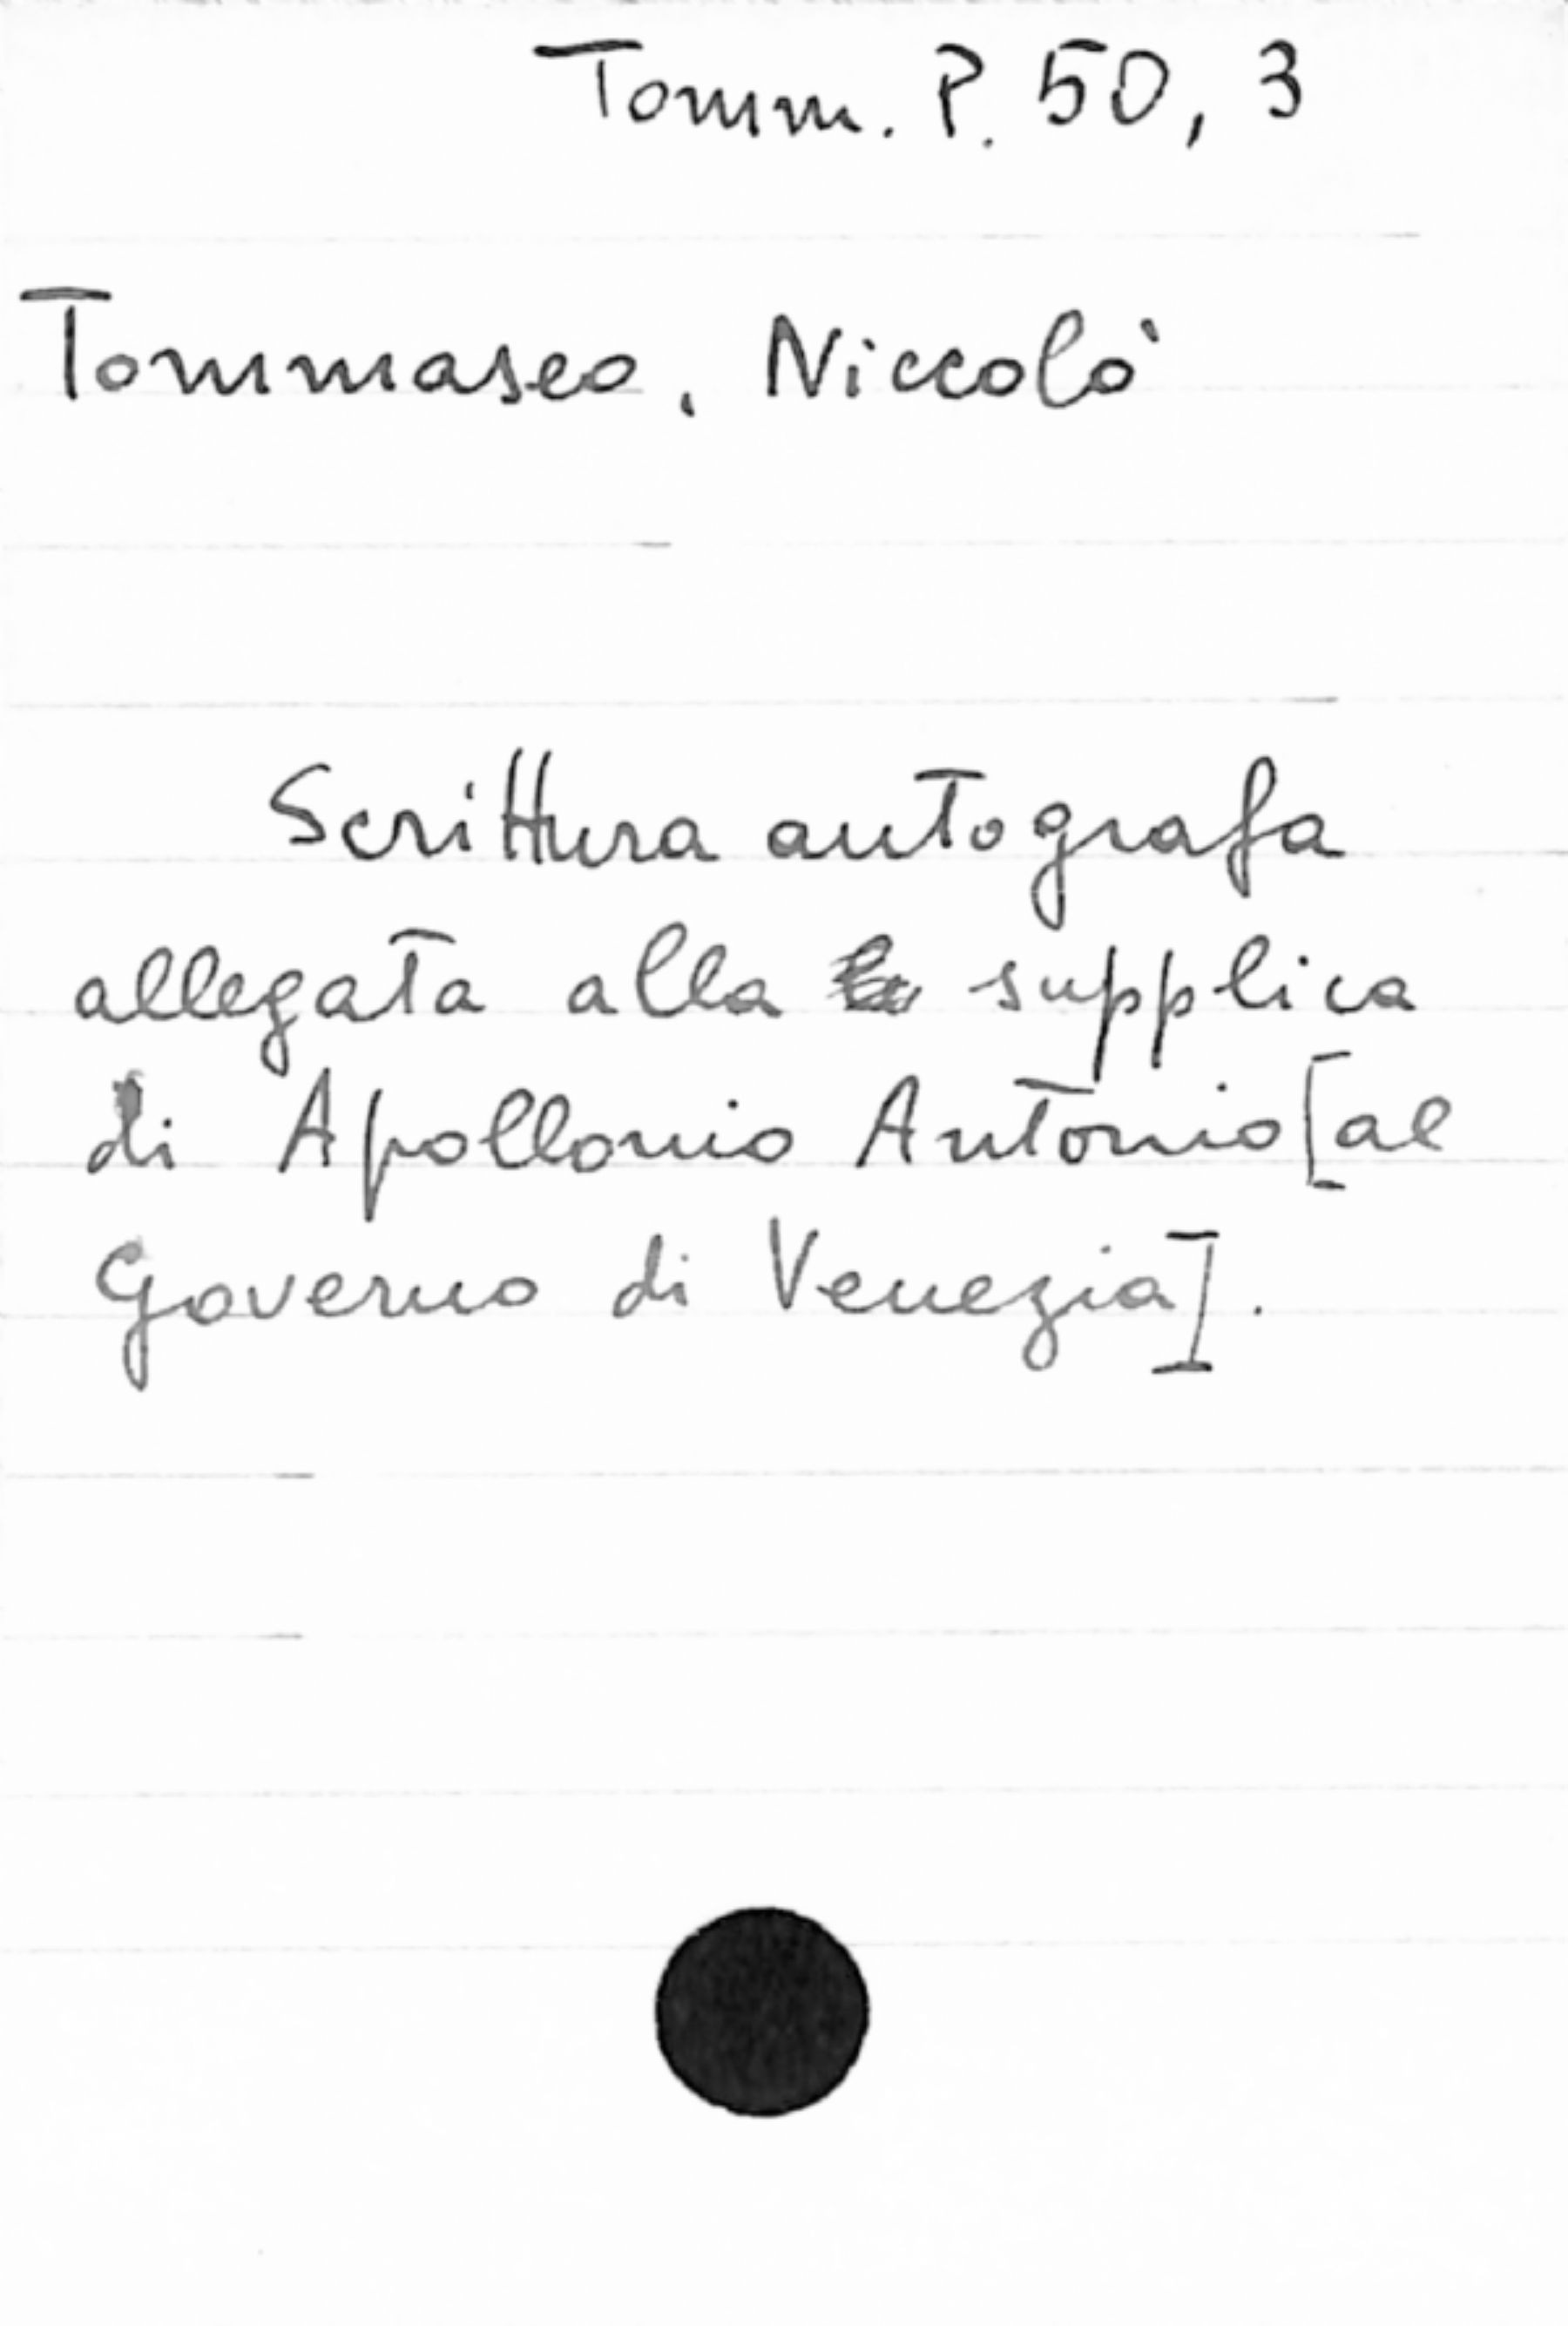 Tomm. P. 50, 3
Tommaseo, Niccolò
Scrittura autografa
allegata alla supplica
di Apollonio Antonio [al
Governo di Venezia].